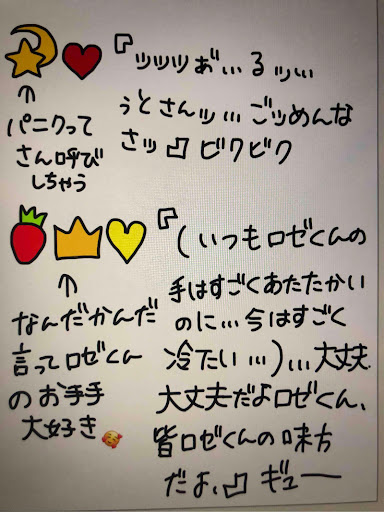 『ッッッぉ゛…るッ…
ぅとさんッ…ごッめんな
さッ』ビクビク
↑
パニクって
さん呼び
しちゃう
『(いつもロゼくんの
手はすごくあたたかい
のに…今はすごく
冷たい…)…大丈夫
大丈夫だよロゼくん、
皆ロゼくんの味方
だよ、』ギュー
↑
なんだかんだ
言ってロゼくん
のお手手
大好き🥰